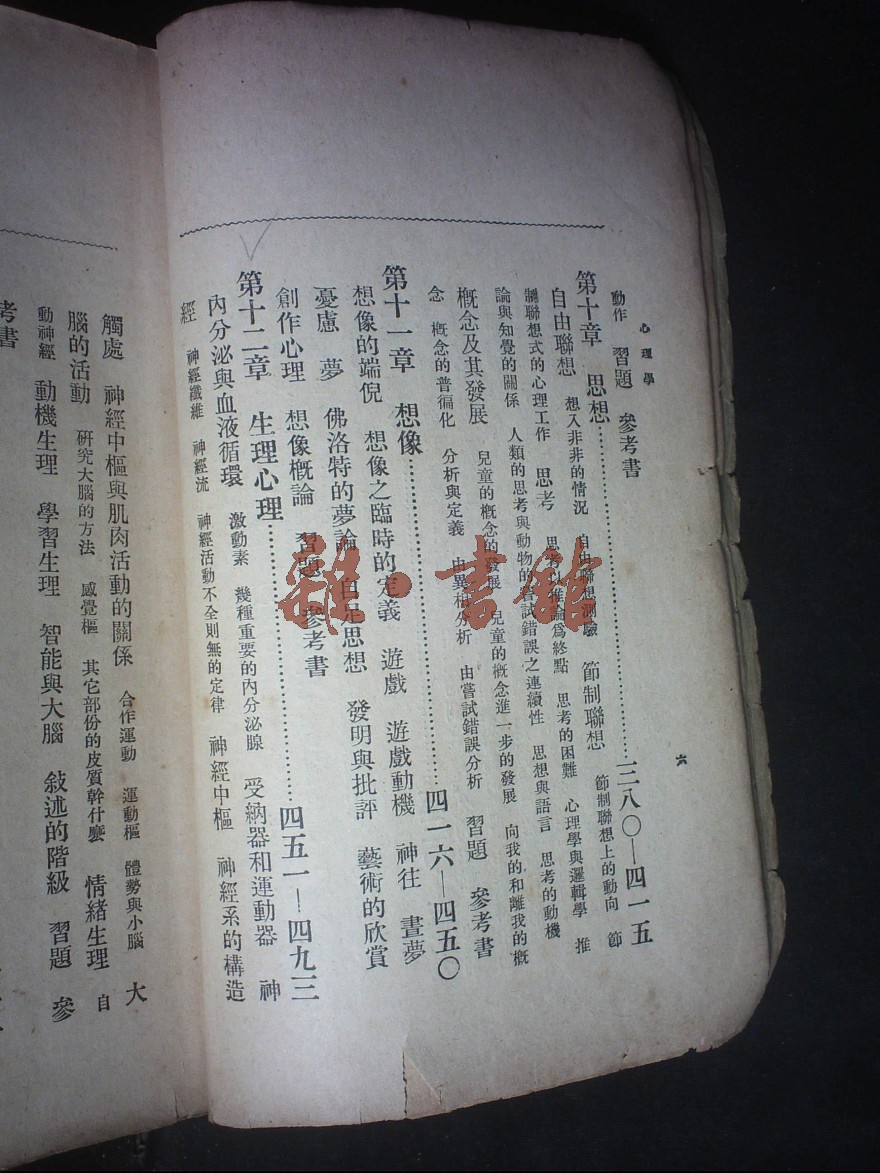 心理學
六
動作 習題 參考書
第十章 思想……三八〇—四一五
自由聯想 想入非非的情況 自由聯想測驗 節制聯想 節制聯想上的動向 節
制聯想式的心理工作 思考 思考以推論爲終點 思考的困難 心理學與邏輯學 推
論與知覺的關係 人類的思考與動物的嘗試錯誤之連續性 思想與語言 思考的動機
概念及其發展 兒童的概念的發展 兒童的概念進一步的發展 向我的和離我的概
念 概念的普徧化 分析與定義 由異相分析 由嘗試錯誤分析 習題 參考書
第十一章 想像……四一六—四五〇
想像的端倪 想像之臨時的定義 遊戲 遊戲動機 神往 晝夢
憂慮 夢 佛洛特的夢論 自足思想 發明與批評 藝術的欣賞
創作心理 想像概論 習題 參考書
第十二章 生理心理……四五一—四九三
內分泌與血液循環 激動素 幾種重要的內分泌腺 受納器和運動器 神
經 神經纖維 神經流 神經活動不全則無的定律 神經中樞 神經系的構造
觸處 神經中樞與肌肉活動的關係 合作運動 運動樞 體勢與小腦 大
腦的活動 研究大腦的方法 感覺樞 其它部份的皮質幹什麼 情緒生理 自
動神經 動機生理 學習生理 智能與大腦 敍述的階級 習題 參
考書
雜·書館